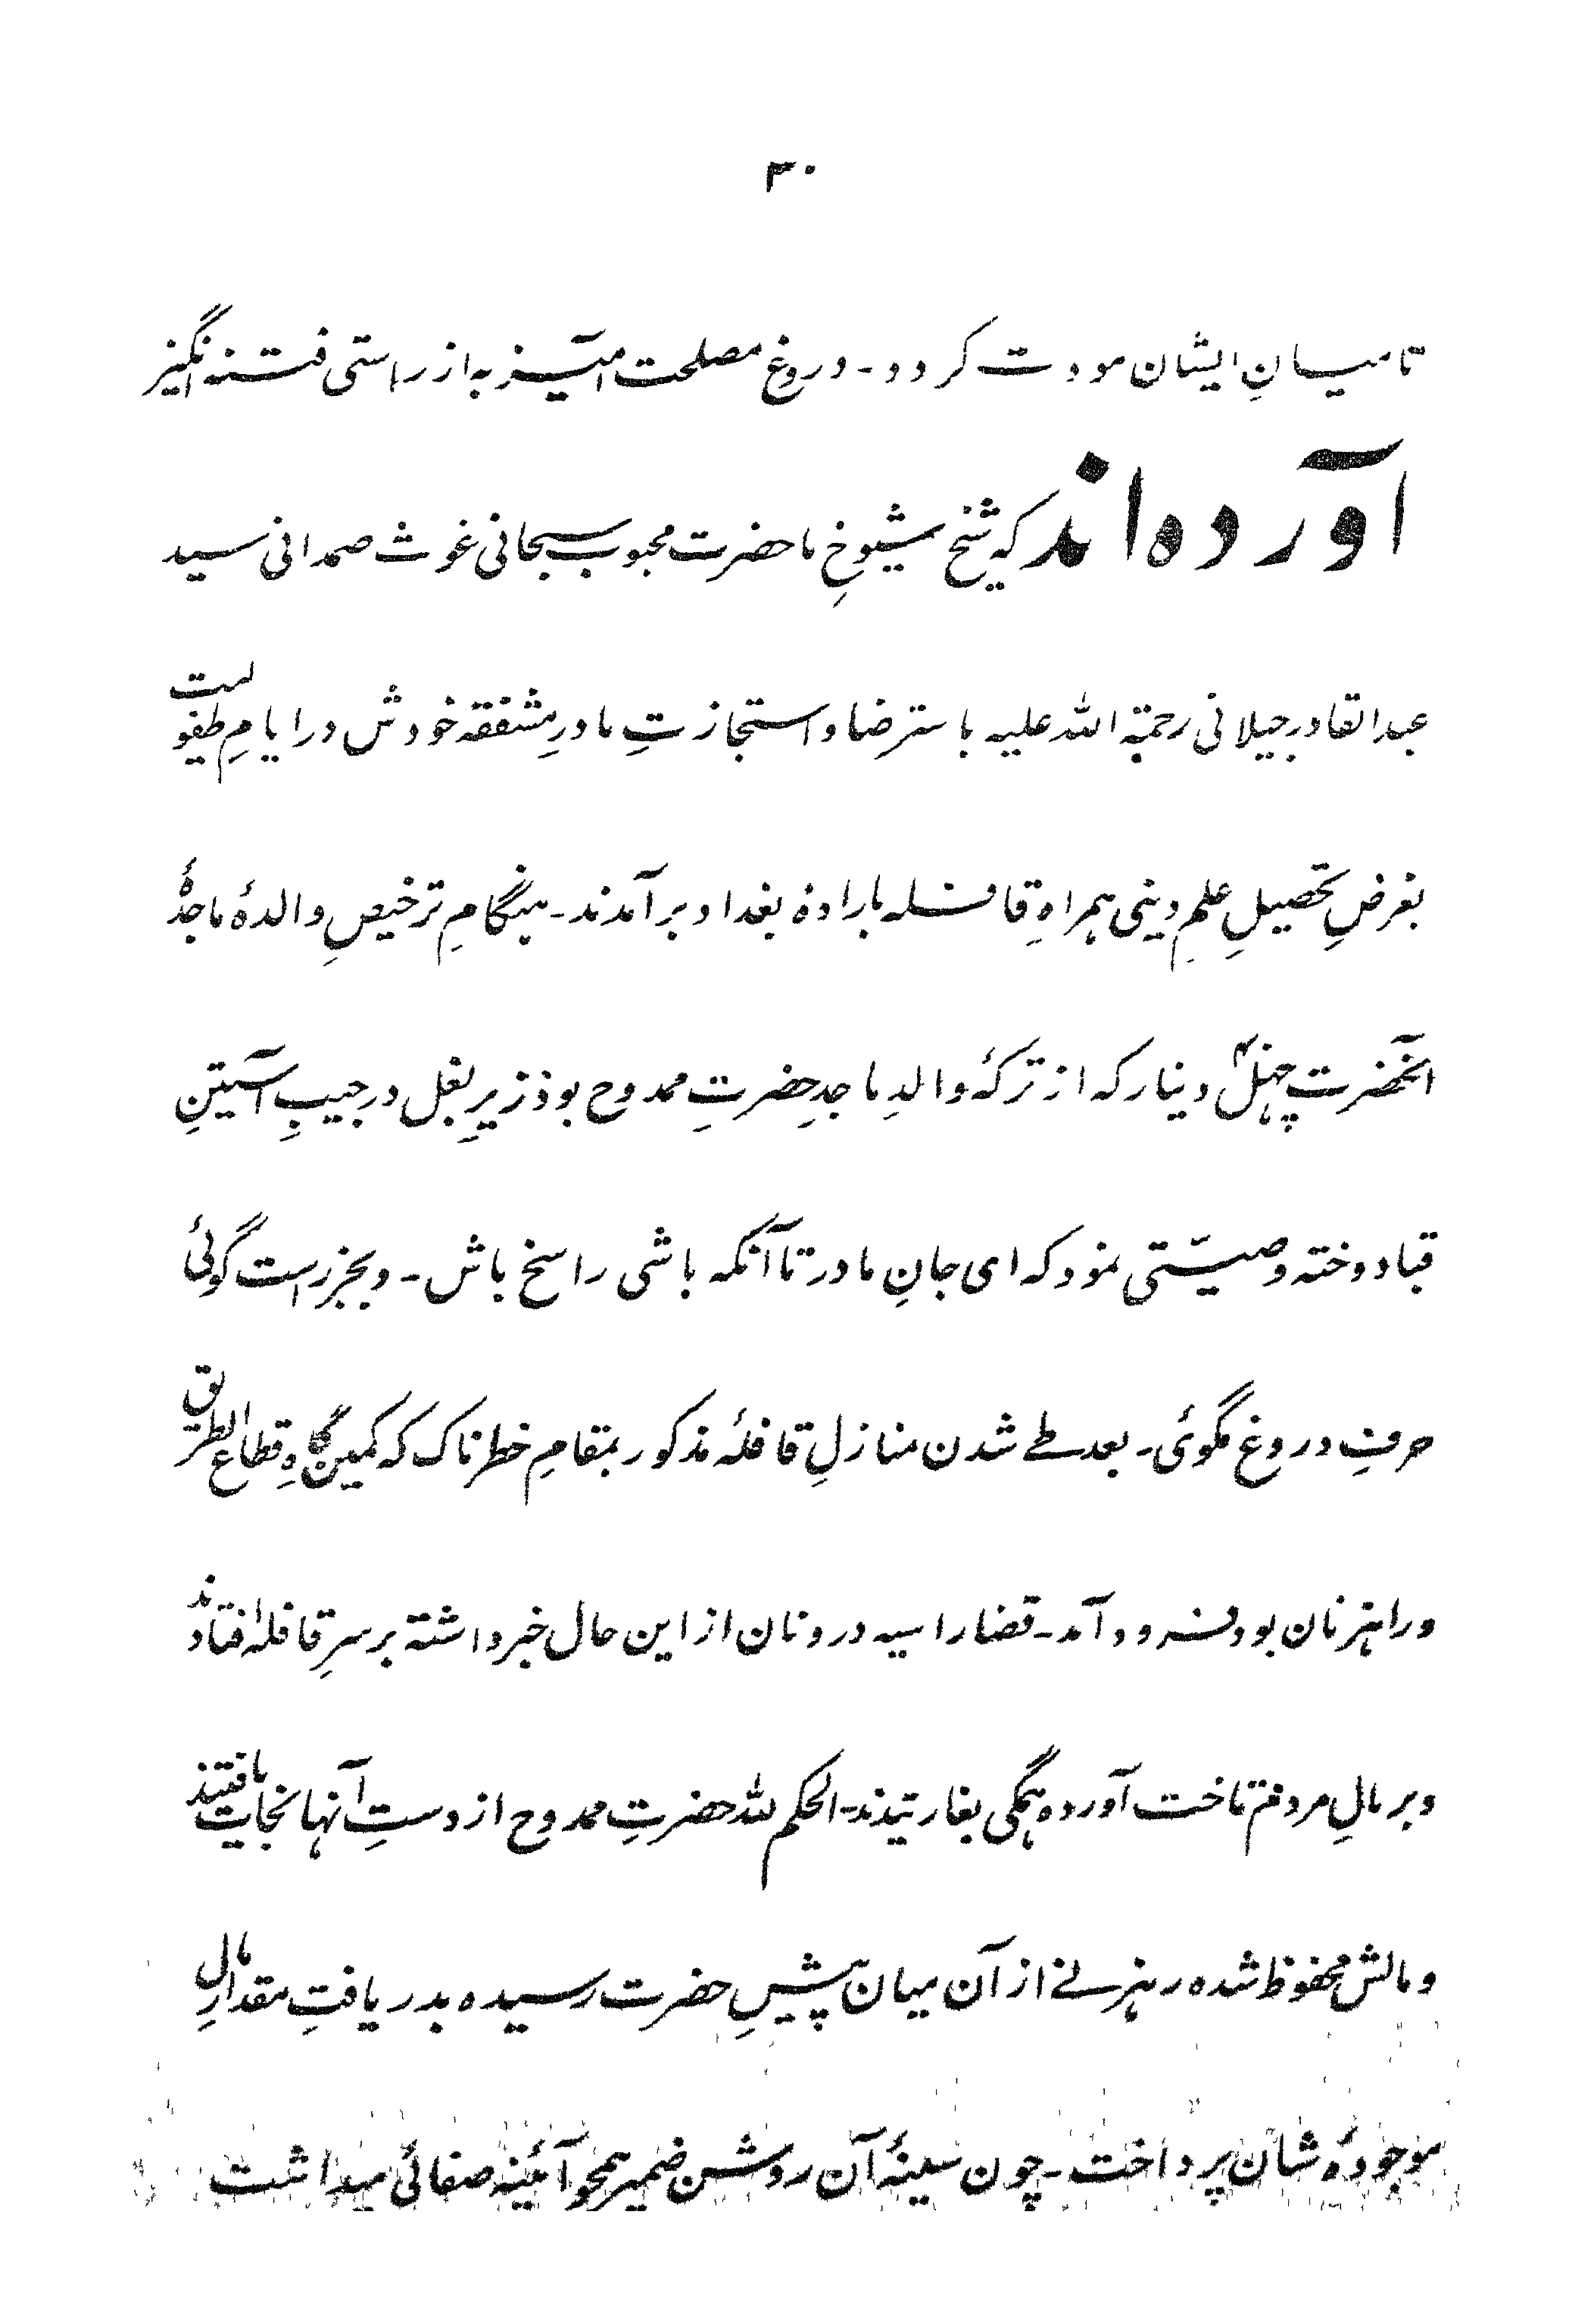 ۳۰
تا میانِ ایشان مودت گردد۔ دروغِ مصلحت آمیز به از راستی فتنه انگیز
آورده‌اند که شیخ شیوخِ ما حضرت محبوب سبحانی غوث صمدانی سید
عبدالقادر جیلانی رحمة الله علیه باسترضا و استجازتِ مادرِ مشفقه خودش در ایامِ طفولیت
بغرضِ تحصیلِ علمِ دینی همراهِ قافله بارادهٔ بغداد برآمدند۔ هنگامِ ترخیصِ والدهٔ ماجدهٔ
آنحضرت چهل دینار که از ترکهٔ والدِ ماجدِ حضرتِ ممدوح بود زیرِ بغل در جیبِ آستینِ
قبا دوخته وصیّتی نمود که ای جانِ مادر تا آنکه باشی راسخ باش۔ و بجز راست گوئی
حرفِ دروغ مگوئی۔ بعد طے شدن منازلِ قافلهٔ مذکور بمقامِ خطرناک که کمین گاهِ قطاع الطریق
و راهزنان بود فرود آمد۔ قضا را سیه درونان از این حال خبر داشته بر سرِ قافله افتادند
و بر مالِ مردم تاخت آورده همگی بغارتیدند۔ الحکم لله حضرتِ ممدوح از دستِ آنها نجات یافتند
و مالش محفوظ شده رهزنے از آن میان پیشِ حضرت رسیده بدریافتِ مقدارِ مال
موجودهٔ شان پرداخت۔ چون سینهٔ آن روشن ضمیر همچو آئینه صفائی میداشت